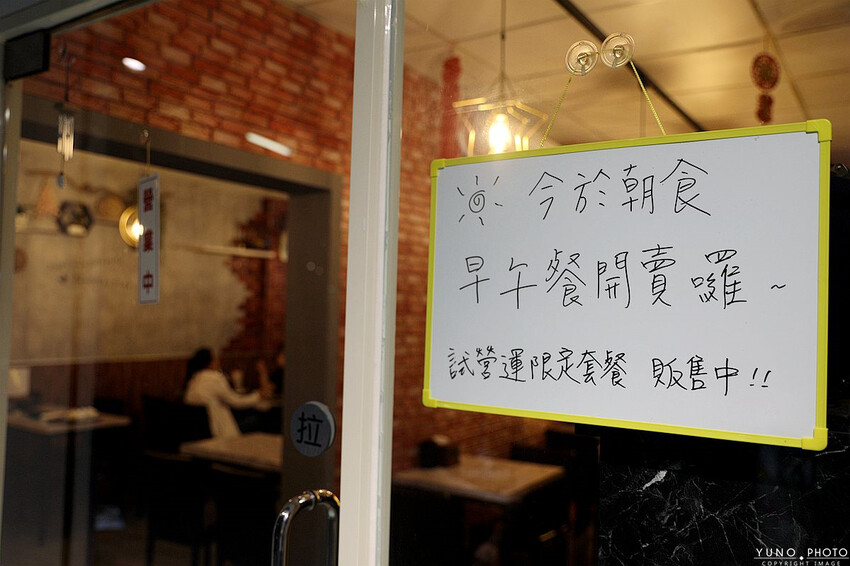 今於朝食
早午餐開賣囉~
試營運限定套餐 販售中!!
營業中
拉
YUNO PHOTO
COPYRIGHT IMAGE